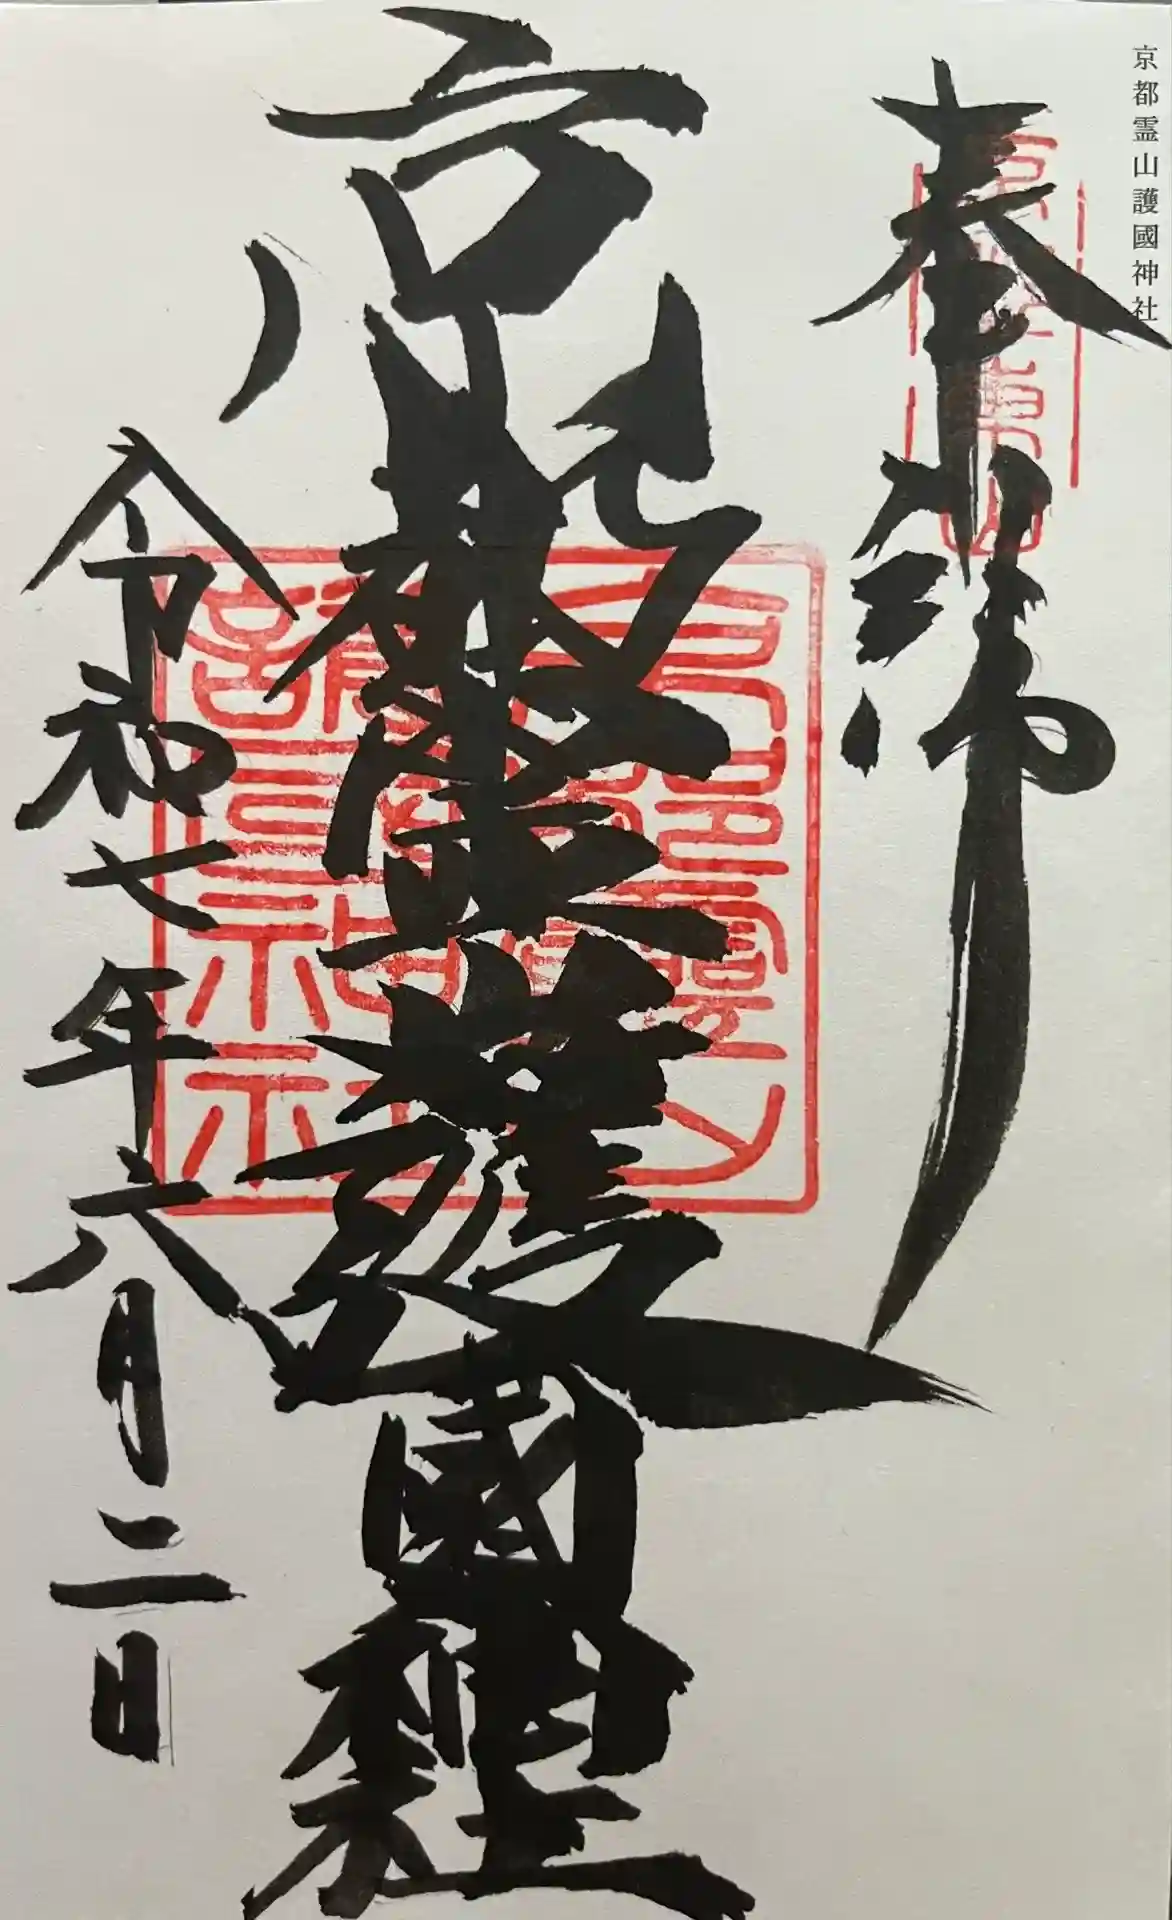 京都霊山護國神社
奉拝
京都霊山護國神社
令和七年六月二日
京都霊山護國神社